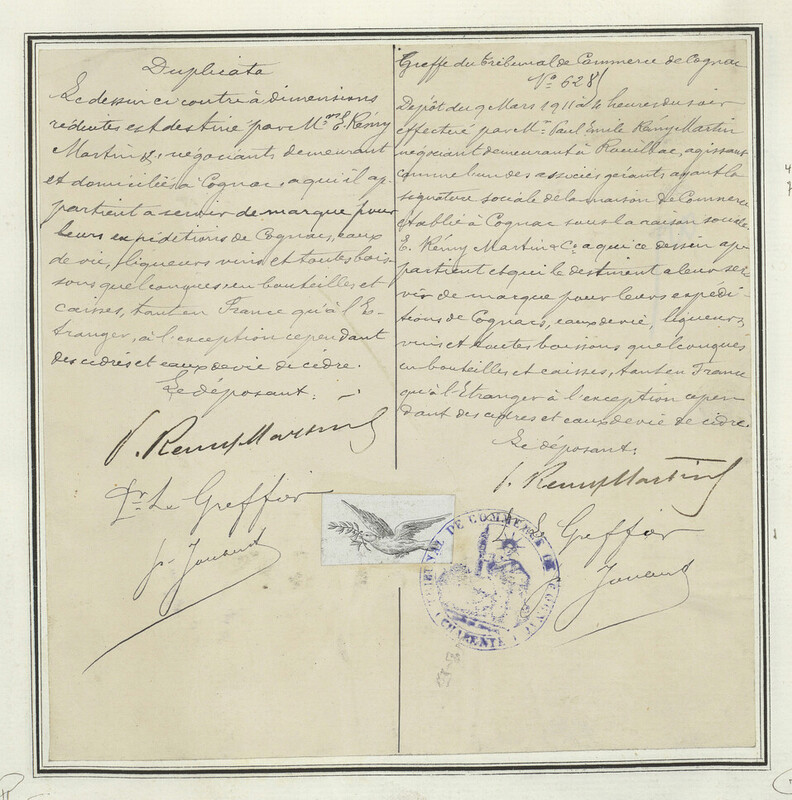 Duplicata
Le dessin ci contre à dimensions
réduites est destiné par Mrs E. Rémy
Martin & Co négociants demeurant
et domiciliés à Cognac, a qui il ap-
partient a servir de marque pour
leurs expéditions de Cognacs, eaux
de vie, liqueurs vins et toutes bois-
sons quelconques en bouteilles et
caisses, tant en France qu'à l'E-
tranger, à l'exception cependant
des cidres et eaux de vie de cidre.
Le déposant:
P. Remy Martin
Pr. Le Greffier
Greffe du Tribunal de Commerce de Cognac
No 628
Dépôt du 9 Mars 1911 à 4 heures du soir
effectué par Mr. Paul Emile Rémy Martin
négociant demeurant à Rouillac, agissant
comme l'un des associés gérants ayant la
signature sociale de la maison de Commerce
établie à Cognac sous la raison sociale
E. Rémy Martin & Co a qui ce dessin ap-
partient et qui le destinent a leur ser-
vir de marque pour leurs expédi-
tions de Cognacs, eaux de vie, liqueurs,
vins et toutes boissons quelconques
en bouteilles et caisses, tant en France
qu'à l'Etranger à l'exception cepen
dant des cidres et eaux de vie de cidre.
Le déposant:
P. Remy Martin
Le Greffier
TRIBUNAL DE COMMERCE DE COGNAC
(CHARENTE)